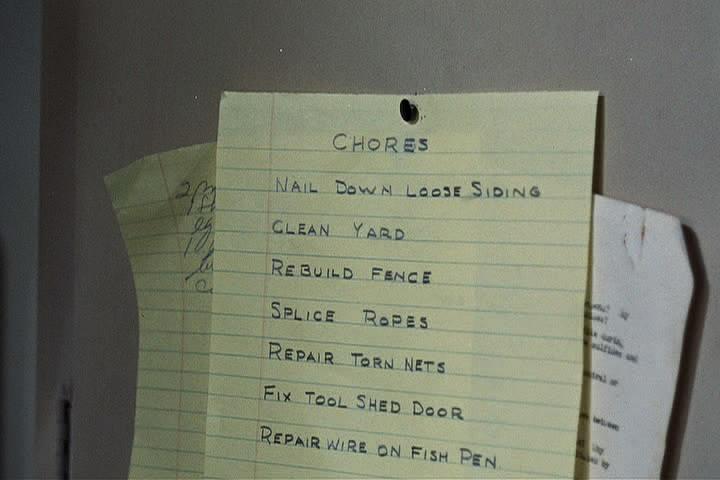 CHORES
NAIL DOWN LOOSE SIDING
CLEAN YARD
REBUILD FENCE
SPLICE ROPES
REPAIR TORN NETS
FIX TOOL SHED DOOR
REPAIR WIRE ON FISH PEN